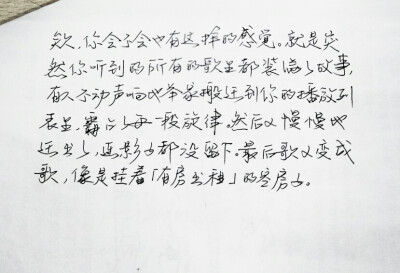 欸,你会不会也有这样的感觉。就是突
然你听到的所有的歌里都装满了故事,
有人不动声响地举家搬迁到你的播放列
表里,霸占了每一段旋律。然后又慢慢地
迁出了,连影子都没留下。最后歌又变成
歌,像是挂着「有房出租」的空房子。